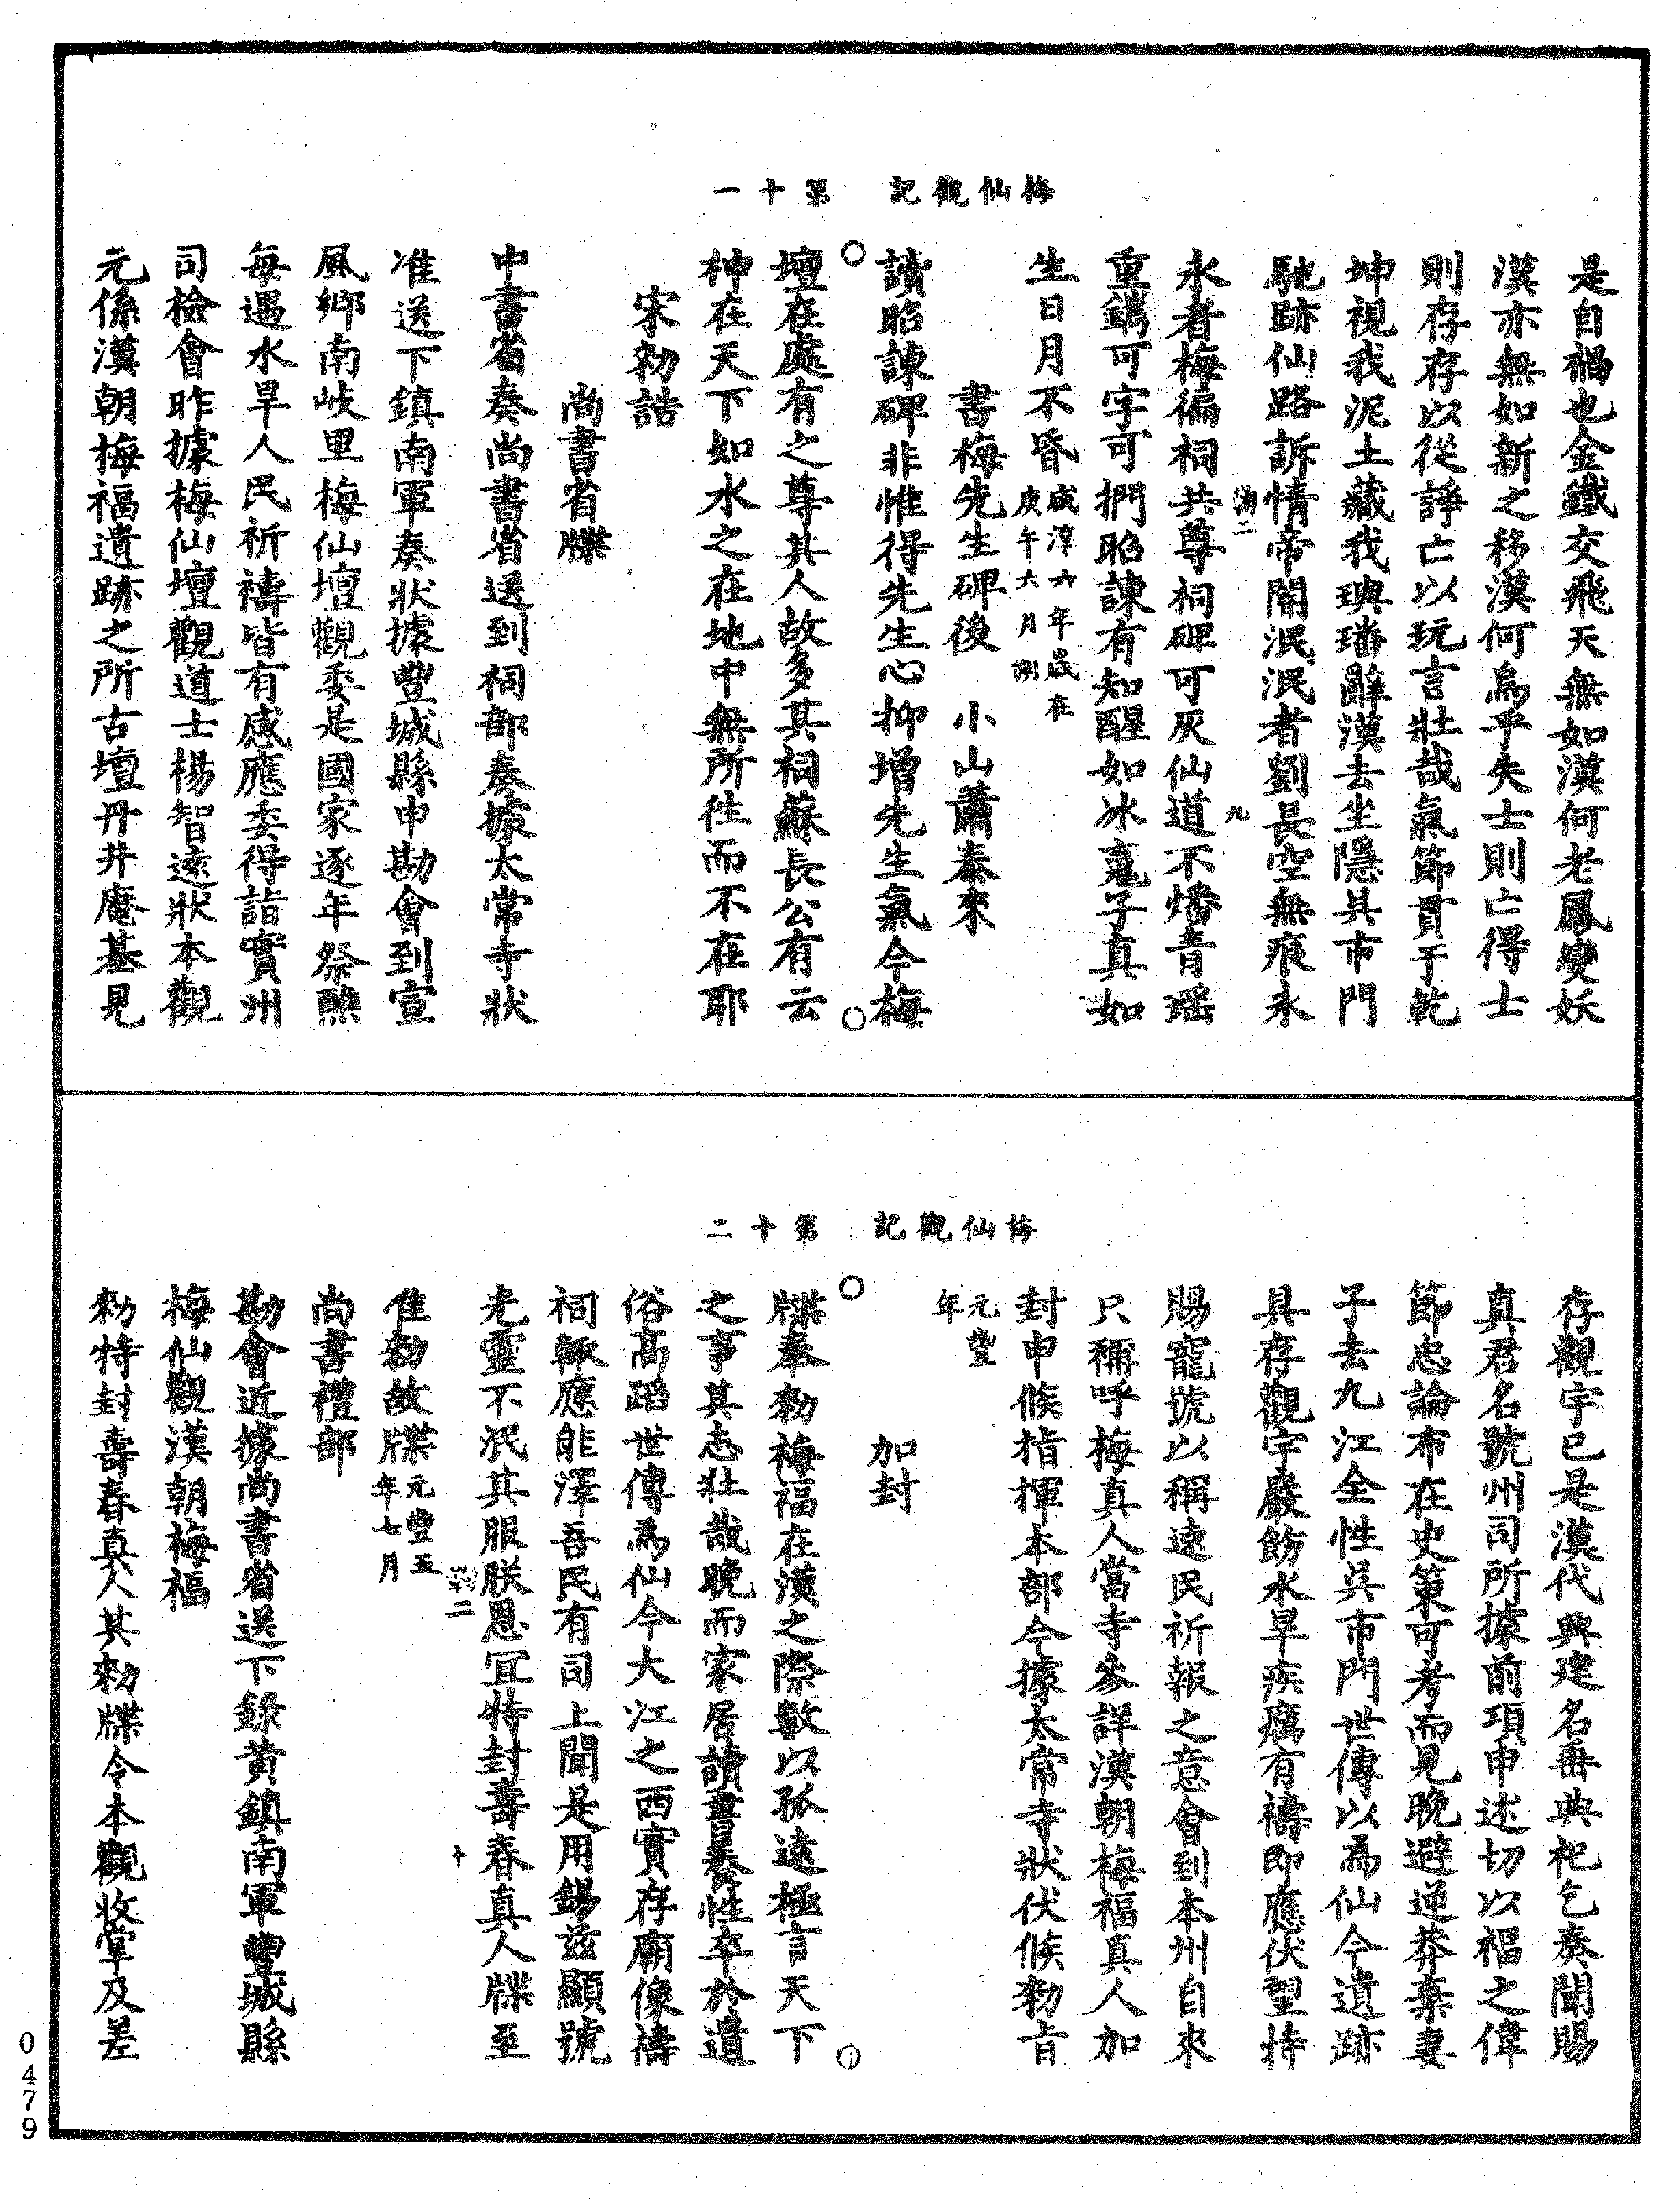 梅仙觀記　第十一
是自禍也金鐵交飛天無如漢何老鳳變妖
漢亦無如新之移漢何烏乎失士則亡得士
則存存以從諍亡以玩言壯哉氣節貫于乾
坤視我泥土藏我璵璠辭漢去坐隱吳市門
馳跡仙路訴情帝閽泯泯者劉長空無痕永
二
九
永者梅徧祠共尊祠碑可灰仙道不燔青瑶
重鐫可字可捫昭諫有知醒如冰䰟子真如
生日月不昏咸淳六年歲在
庚午六月
書梅先生碑後　小山蕭泰來
讀昭諫碑非惟得先生心抑增先生氣今梅
壇在處有之尊其人故多其祠蘇長公有云
神在天下如水之在地中無所往而不在耶
宋勑誥
尚書省牒
中書省奏尚書省送到祠部奏據太常寺狀
准送下鎮南軍奏狀據豐城縣申勘會到宣
風鄉南岐里梅仙壇觀委是國家逐年祭醮
每遇水旱人民祈禱皆有感應委得詣實州
司檢會昨據梅仙壇觀道士楊智遠狀本觀
元係漢朝梅福遺跡之所古壇丹井庵基見
梅仙觀記　第十二
存觀宇已是漢代興建名垂典祀乞奏聞賜
真君名號州司所據前項申述切以福之偉
節忠論布在史策可考而見晚避逆莽棄妻
子去九江全性吳市門世傳以為仙今遺跡
具存觀宇嚴飭水旱疾癘有禱即應伏望特
賜寵號以稱遠民祈報之意會到本州自來
只稱呼梅真人當寺參詳漢朝梅福真人加
封申候指揮本部今據太常寺狀伏候勑旨
元豐
年
加封
牒奉勑梅福在漢之際數以孤遠極言天下
之事其志壯哉晚而家居讀書養性卒於遺
俗高蹈世傳為仙今大江之西實存廟像禱
祠輒應能澤吾民有司上聞是用錫茲顯號
光靈不泯其服朕恩冝特封壽春真人牒至
二
十
准勑故牒元豐五
年七月
尚書禮部
勘會近據尚書省送下錄黃鎮南軍豐城縣
梅仙觀漢朝梅福
勑特封壽春真人其勑牒令本觀收掌及差
0479